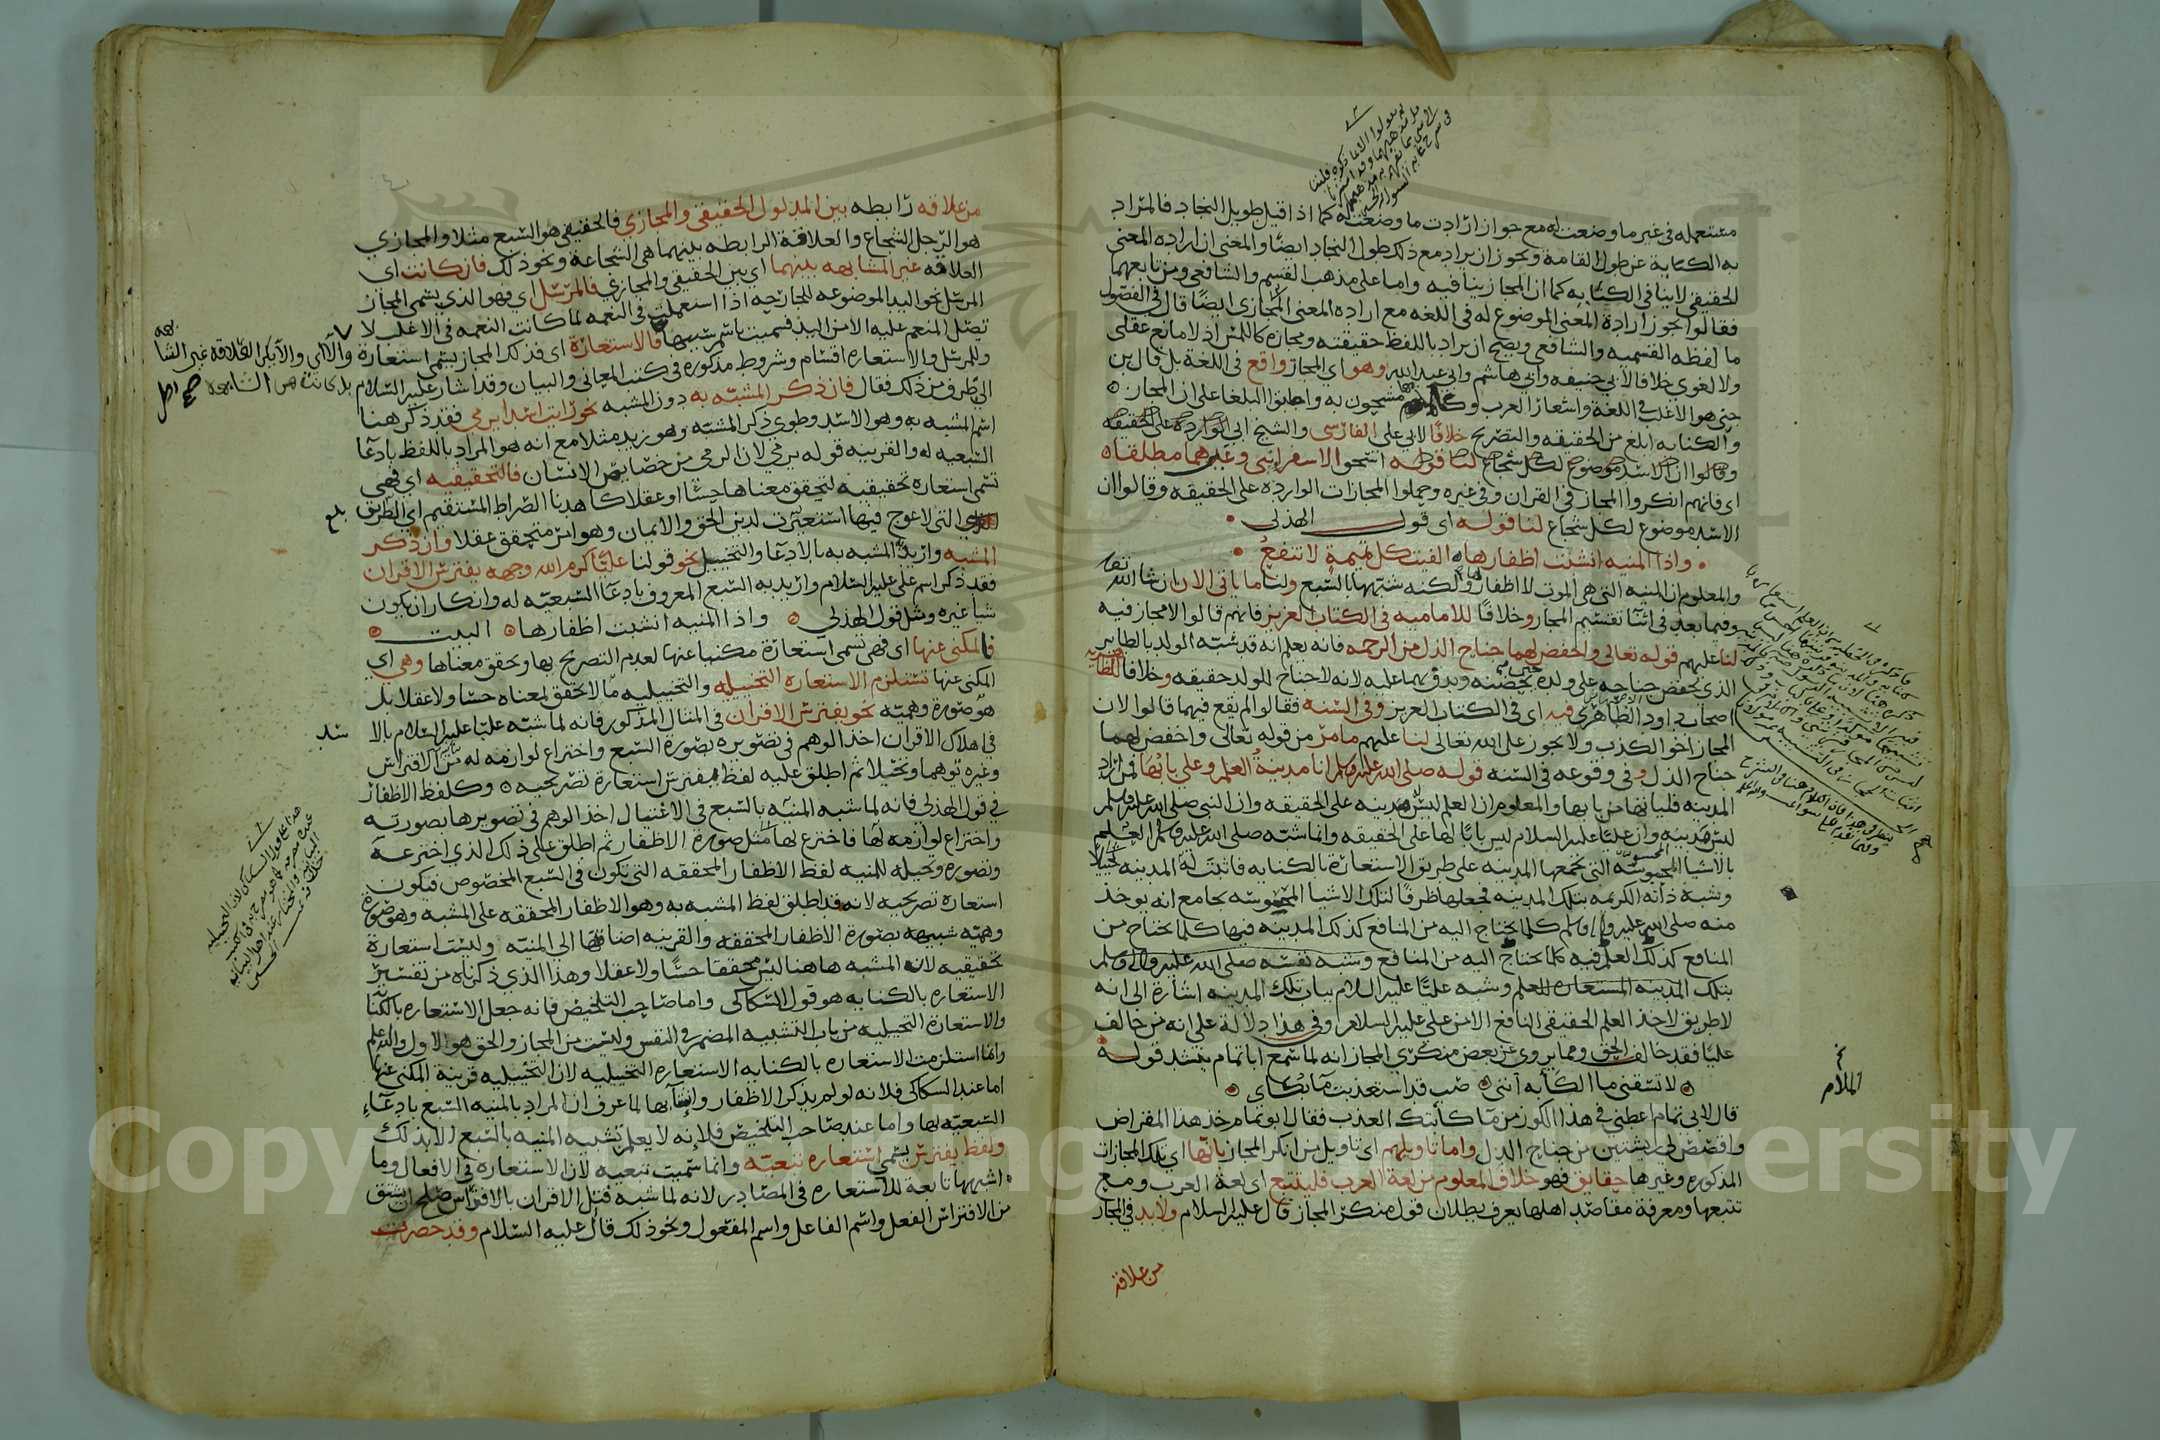 مستعمله في غير ما وضعت له مع جواز ارادت ما وضعت له كما اذا قيل طويل النجاد فالمراد
به الكناية عن طول القامة ويجوز ان يراد مع ذلك طول النجاد ايضا والمعنى ان اراده المعنى
الحقيقي لاينافي الكنايه كما ان المجاز ينافيه واما على مذهب القسم والشافعي ومن تابعهما
فقالوا يجوز ارادة المعنى الموضوع له في اللغه مع اراده المعنى المجازي ايضا قال في الفصول
ما لفظه القسميه والشافعي ويصح ان يراد باللفظ حقيقته ومجازه كاللمس اذ لا مانع عقلي
ولا لغوي خلافا لابي حنيفه وابي هاشم وابي عبد الله وهو اي المجاز واقع في اللغة بل قال ابن
جني هو الاغلب في اللغة واشعار العرب مشحون به واطبق البلغا على ان المجاز
والكنايه ابلغ من الحقيقه والتصريح خلافا لابي علي الفارسي والشيخ ابي
وقالوا ان الاسد موضوع لكل شجاع لنا قوله اسحق الاسفرايني وغيرهما مطلقا
اي فانهم انكروا المجاز في القران وفي غيره وحملوا المجازات الوارده على الحقيقه وقالوا ان
الاسد موضوع لكل شجاع لنا قوله اي قول الهذلي
واذا المنيه انشبت اظفارها الفيت كل تميمة لا تنفع
والمعلوم ان المنيه التي هي الموت لا اظفار لها ولكنه شبهها بالسبع ولنا ما ياتي الان ان شا الله تعا
وفيما بعد في اثنا تقسيم المجاز وخلافا للاماميه في الكتاب العزيز فانهم قالوا لا مجاز فيه
لنا عليهم قوله تعالى واخفض لهما جناح الذل من الرحمه فانه يعلم انه قد شبه الولد بالطاير
الذي يخفض جناحه على ولده حتى يحضنه ويدق بما عليه لانه لا جناح للولد حقيقه وخلافا للظاهريه
اصحاب داود الظاهري فيه اي في الكتاب العزيز وفي السنه فقالوا لم يقع فيهما قالوا لان
المجاز اخو الكذب ولا يجوز على الله تعالى لنا عليهم ما مر من قوله تعالى واخفض لهما
جناح الذل وفي وقوعه في السنه قوله صلى الله عليه وسلم انا مدينة العلم وعلي بابها فمن اراد
المدينه فلياتها من بابها والمعلوم ان العلم ليس مدينه على الحقيقه وان النبي صلى الله عليه وسلم
ليس مدينه وان عليا عليه السلام ليس بابا لها على الحقيقه وانما شبه صلى الله عليه وسلم العلم
بالاشيا المحسوسه التي تجمعها المدينه على طريق الاستعارة بالكنايه فاثبت له المدينه تخييلا
وشبه ذاته الكريمه بتلك المدينه فجعلها ظرفا لتلك الاشيا المحسوسه بجامع انه يوخذ
منه صلى الله عليه واله وسلم كلما يحتاج اليه من المنافع كذلك المدينه فيها كلما يحتاج من
المنافع كذلك العلم فيه كلما يحتاج اليه من المنافع وشبه نفسه صلى الله عليه واله وسلم
بتلك المدينه المستعاره للعلم وشبه عليا عليه السلام بباب تلك المدينه اشارة الى انه
لا طريق لاخذ العلم الحقيقي النافع الا من علي عليه السلام وفي هذا دلالة على انه من خالف
عليا فقد خالف الحق ومما يروى عن بعض منكري المجاز انه لما سمع ابا تمام ينشد قوله
لا تسقني ما الكآبه انني صب قد استعذبت ما بكاي
الملام
قال لابي تمام اعطني في هذا الكوز من ما كأبتك العذب فقال ابو تمام خذ هذا المقراض
واقصص لي ريشتين من جناح الذل واما تاويلهم اي تاويل من انكر المجاز بانها اي تلك المجازات
المذكوره وغيرها حقايق فهو خلاف المعلوم من لغة العرب فليتتبع اي لغة العرب ومع
تتبعها ومعرفة مقاصد اهلها يعرف بطلان قول منكر المجاز قال عليه السلام ولا بد في المجاز
من علاقه
من علاقه رابطه بين المدلول الحقيقي والمجازي فالحقيقي هو السبع مثلا والمجازي
هو الرجل الشجاع والعلاقة الرابطه بينهما هي الشجاعة ونحو ذلك فان كانت اي
العلاقه غير المشابهه بينهما اي بين الحقيقي والمجازي فالمرسل اي فهو الذي يسمى المجاز
المرسل نحو اليد الموضوعه للجارحه اذا استعملت في النعمه لما كانت النعمه في الاغلب لا
تصل المنعم عليه الا من اليد فسميت باسم سببها والا فالاستعارة اي فذلك المجاز يسمى استعارة
وللمرسل والاستعاره اقسام وشروط مذكوره في كتب المعاني والبيان وقد اشار عليه السلام
الى طرف من ذلك فقال فان ذكر المشبه به دون المشبه نحو رايت اسدا يرمي فقد ذكر هنا
اسم المشبه به وهو الاسد وطوي ذكر المشبه وهو زيد مثلا مع انه هو المراد باللفظ بادعا
السبعيه له والقرينه قوله يرمي لان الرمي من خصايص الانسان فالتحقيقيه اي فهي
تسمى استعاره تحقيقيه لتحقق معناها حسا او عقلا كاهدنا الصراط المستقيم اي الطريق
التي لا عوج فيها استعيرت لدين الحق والايمان وهو امر متحقق عقلا وان ذكر
المشبه واريد المشبه به بالادعا والتخييل نحو قولنا علي كرم الله وجهه يفترس الاقران
فقد ذكر اسم علي عليه السلام واريد به السبع المعروف بادعا السبعيه له وانكار ان يكون
شيا غيره ومثل قول الهذلي واذا المنيه انشبت اظفارها البيت
فالمكني عنها اي فهي تسمى استعارة مكنيا عنها لعدم التصريح بها وتحقق معناها وهي اي
المكني عنها تستلزم الاستعاره التخييليه والتخييليه ما لا تحقق لمعناه حسا ولا عقلا بل
هو صورة وهميه نحو يفترس الاقران في المثال المذكور فانه لما شبه عليا عليه السلام بالا
سد
في اهلاك الاقران اخذ الوهم في تصويره بصورة السبع واختراع لوازمه له من الافتراس
وغيره توهما وتخيلا ثم اطلق عليه لفظ يفترس استعارة تصريحيه وكلفظ الاظفار
في قول الهذلي فانه لما شبه المنيه بالسبع في الاغتيال اخذ الوهم في تصويرها بصورته
واختراع لوازمه لها فاخترع لها مثل صورة الاظفار ثم اطلق على ذلك الذي اخترعه
وتصوره وتخيله للمنيه لفظ الاظفار المحققه التي تكون في السبع المخصوص فيكون
استعارة تصريحيه لانه قد اطلق لفظ المشبه به وهو الاظفار المحققه على المشبه وهو صورة
وهميه شبيهه بصورة الاظفار المحققه والقرينه اضافتها الى المنيه وليست استعارة
تحقيقيه لان المشبه هاهنا ليس محققا حسا ولا عقلا وهذا الذي ذكرناه من تفسير
الاستعاره بالكنايه هو قول السكاكي واما صاحب التلخيص فانه جعل الاستعاره بالكنا
والاستعارة التخييليه من باب التشبيه المضمر في النفس وليست من المجاز والحق هو الاول والله اعلم
وانما استلزمت الاستعاره بالكنايه الاستعاره التخييليه لان التخييليه قرينة المكني عنها
اما عند السكاكي فلانه لو لم يذكر الاظفار واثباتها لما عرف ان المراد بالمنيه السبع بادعآء
السبعيه لها واما عند صاحب التلخيص فلانه لا يعلم تشبيه المنيه بالسبع الا بذلك
ولفظ يفترس يسمى استعاره تبعيه وانما سميت تبعيه لان الاستعاره في الافعال وما
اشبهها تابعة للاستعاره في المصادر لانه لما شبه قتل الاقران بالافتراس صلح ان يشتق
من الافتراس الفعل واسم الفاعل واسم المفعول ونحو ذلك قال عليه السلام وقد حصرت
والا اي والا يكن العلاقه غير المشا
بهه
بل كانت هي المشابهه صح اصل
بلغ